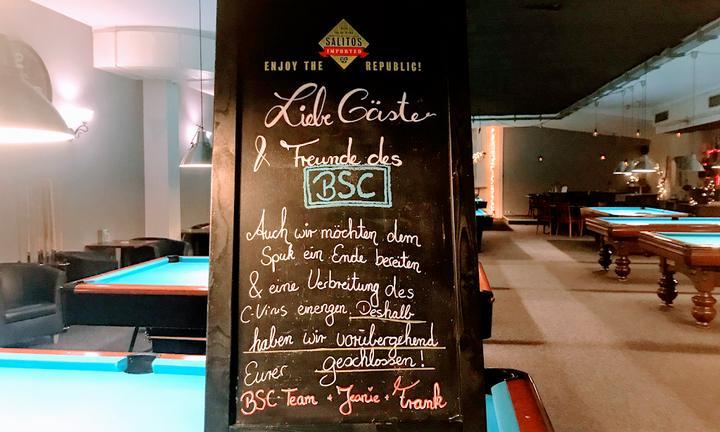 SALITOS
IMPORTED
ENJOY THE REPUBLIC!
Liebe Gäste
& Freunde des
BSC
Auch wir möchten dem
Spuk ein Ende bereiten
& eine Verbreitung des
C-Virus einengen. Deshalb
haben wir vorübergehend
geschlossen!
Eurer
BSC-Team + Jeanie + Frank